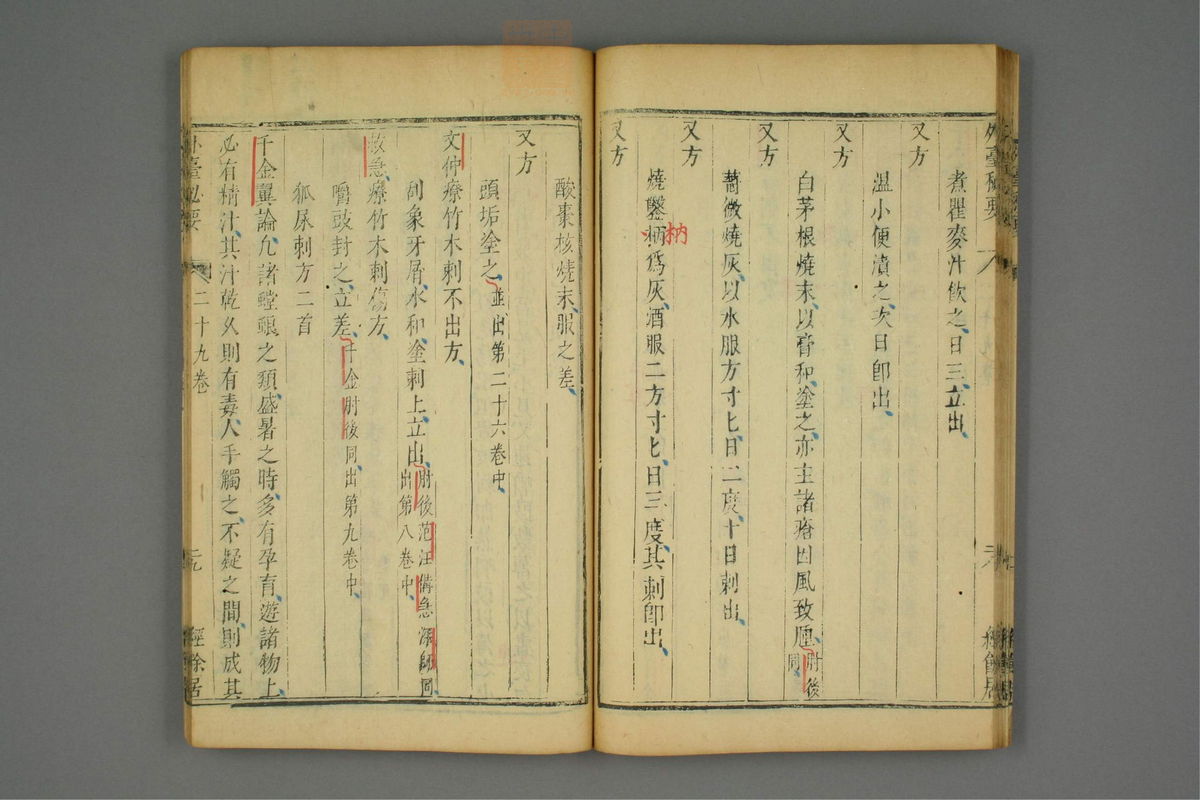 煮瞿麥汁飲之日三立出
又方
温小便漬之次日即出
又方
白茅根燒末以膏和塗之亦主諸瘡因風致腫肘後
同
又方
薔薇燒灰以水服方寸匕日二度十日刺出
又方
燒鑿柄爲灰酒服二方寸匕日三度其刺即出
枘
又方
酸棗核燒末服之差
又方
頭垢塗之並出第二十六卷中
文仲療竹木刺不出方
刮象牙屑水和塗刺上立出肘後范汪備急深師同
出第八卷中
救急療竹木刺傷方
嚼豉封之立差千金肘後同出第九卷中
狐尿刺方二首
千金翼論凡諸螳蜋之類盛暑之時多有孕育遊諸物上
必有精汁其汁乾久則有毒人手觸之不疑之間則成其
外臺秘要
二十九卷
經餘居